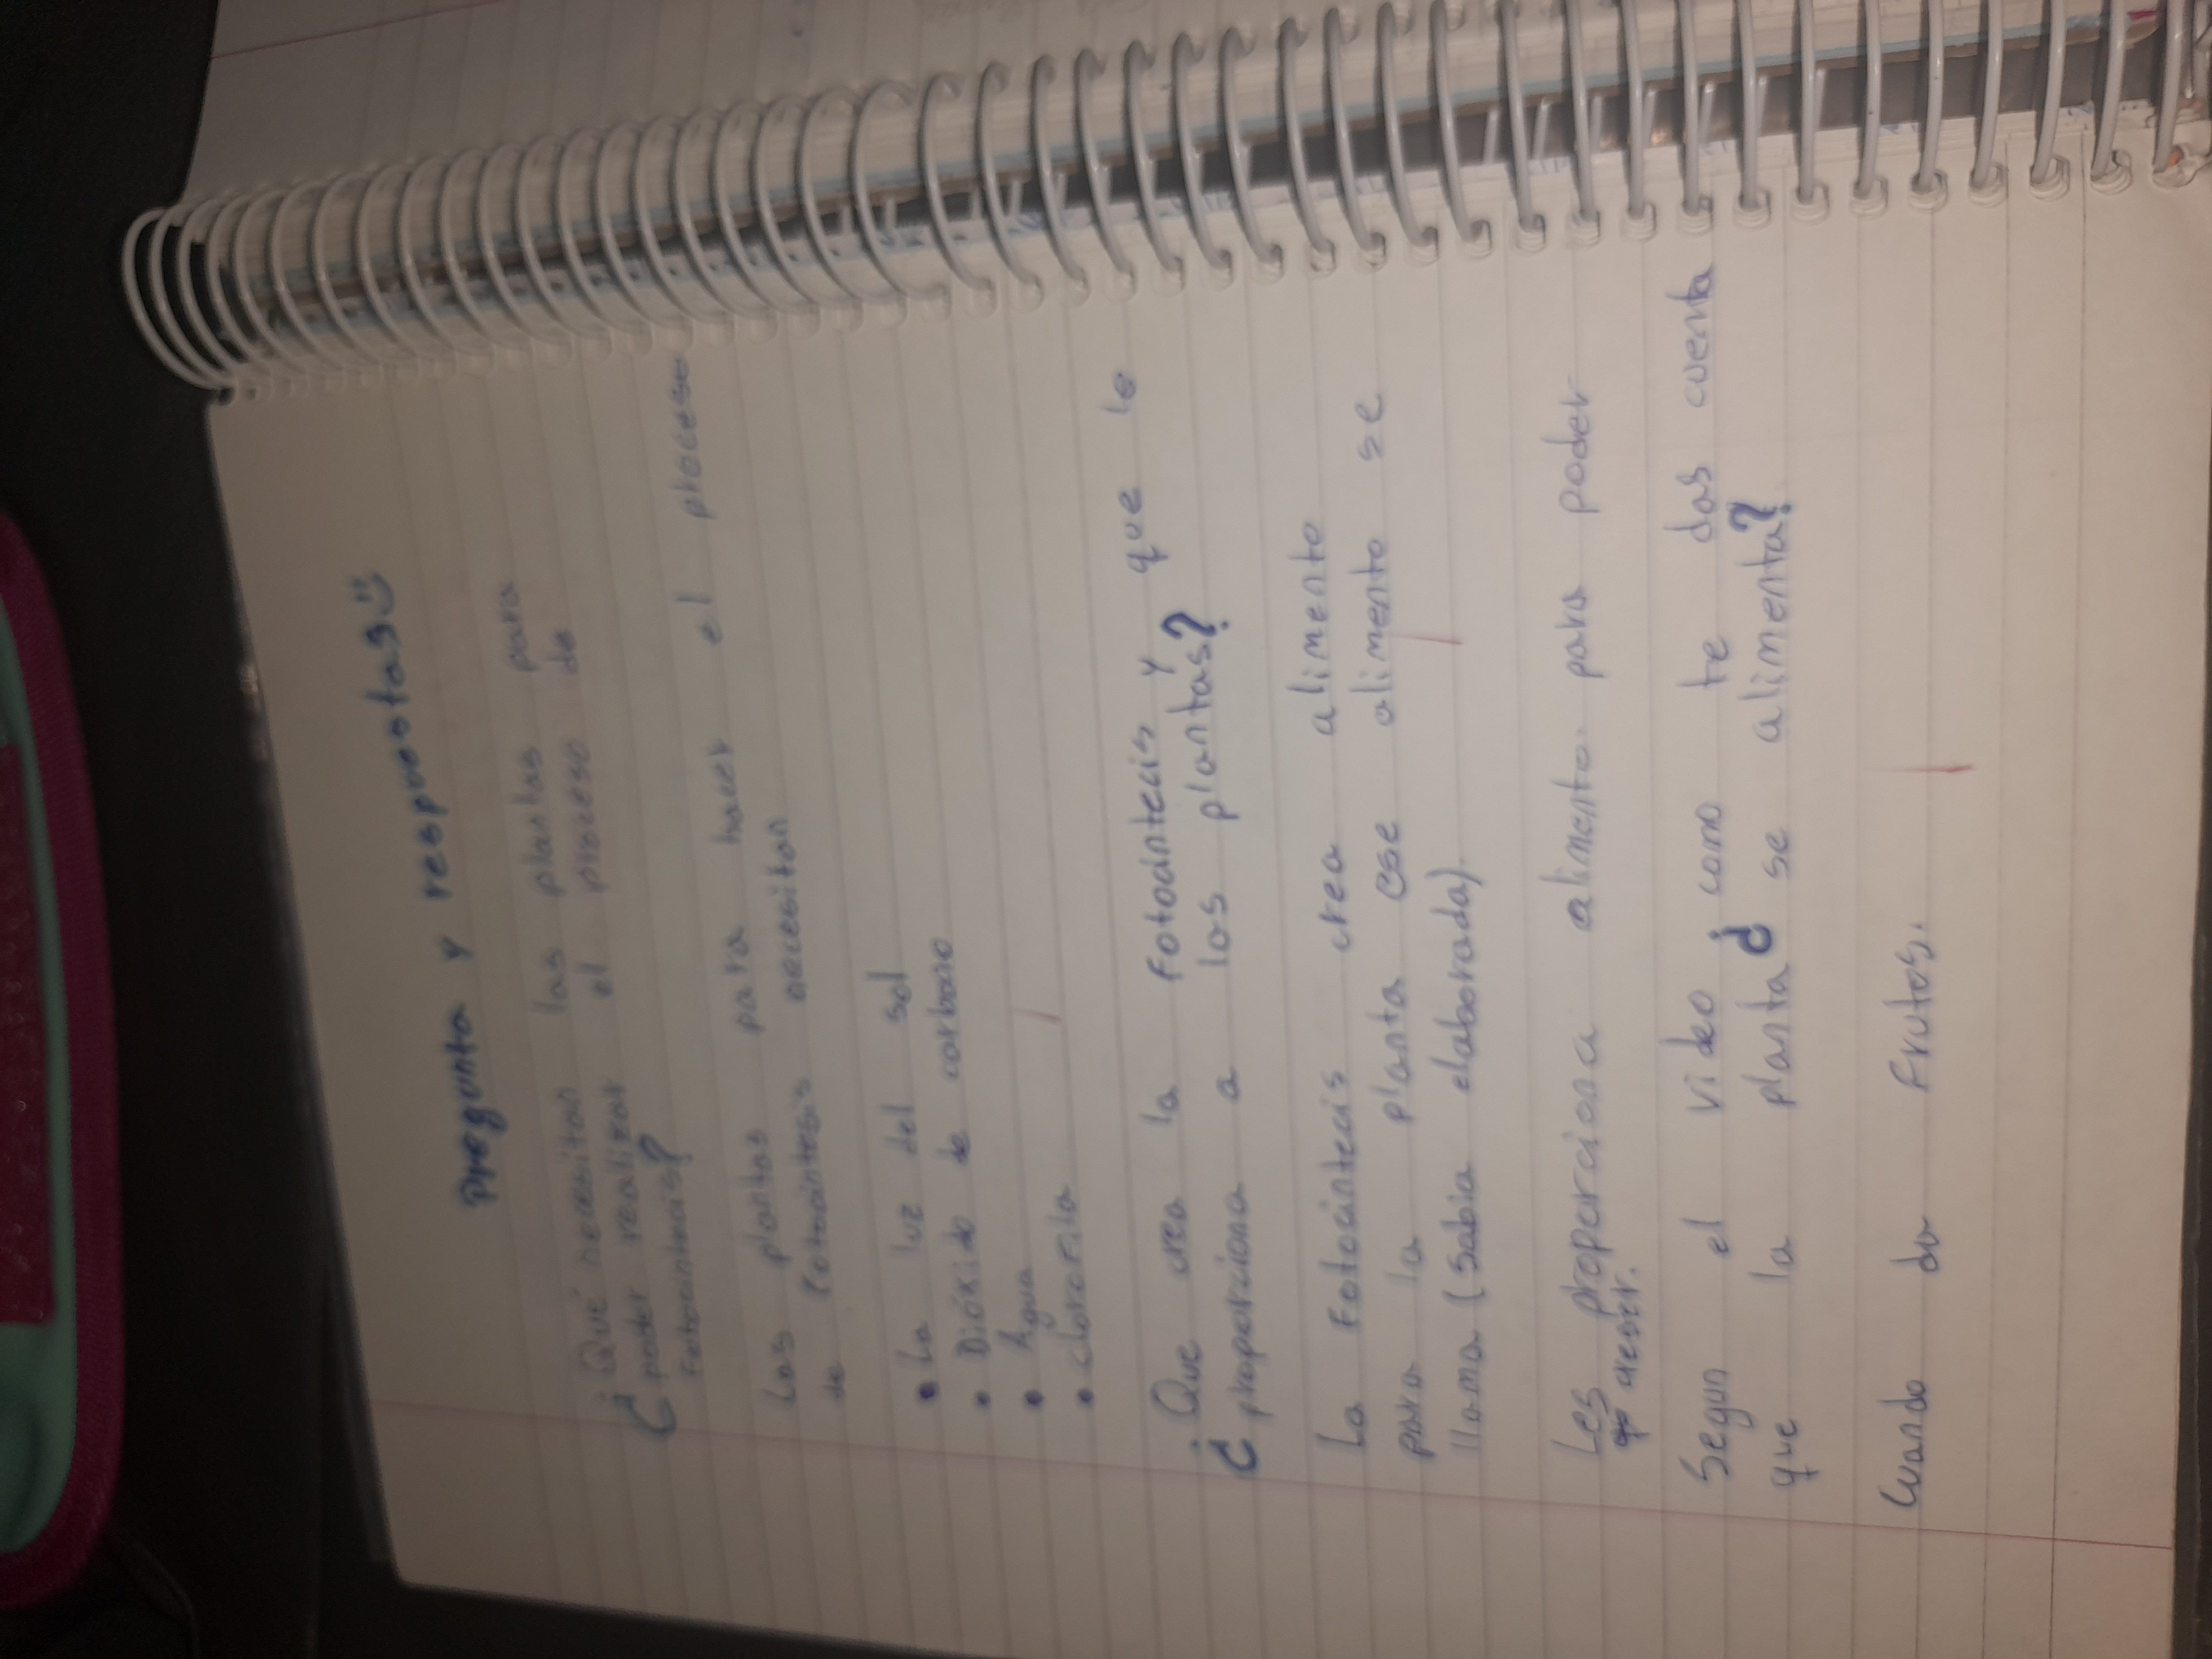 Pregunta y respuestas
¿Qué necesitan las plantas para
poder realizar el proceso de
Fotocintecis?
Las plantas para hacer el proceso
de fotosintesis necesitan
• La luz del sol
• Dióxido de carbono
• Agua
• clorofila
¿Que crea la Fotocintecis y que le
proporciona a las plantas?
La Fotocintecis crea alimento
para la planta ese alimento se
llama (sabia elaborada).
Les proporciona alimento para poder
crecer.
Segun el video ¿como te das cuenta
que la planta se alimenta?
Cuando da frutos.